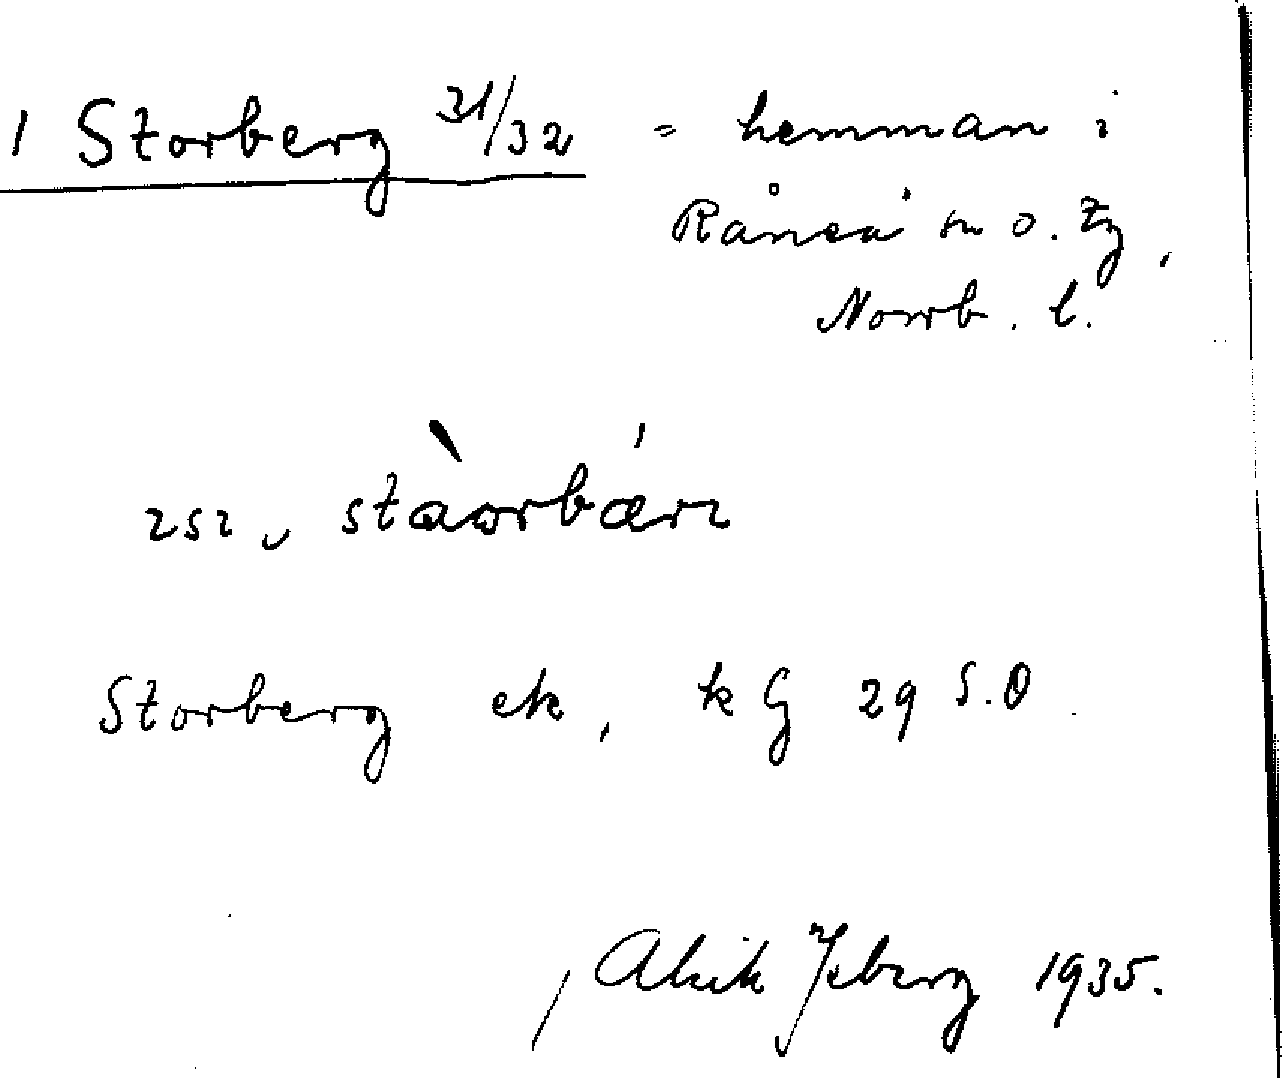 1 Storberg 31/32 = hemman i
Råneå sn o. tg,
Norrb. l.
stàorbá̈rı
Storberg ek, kG 29 S.O.
Alrik Ysberg 1935.